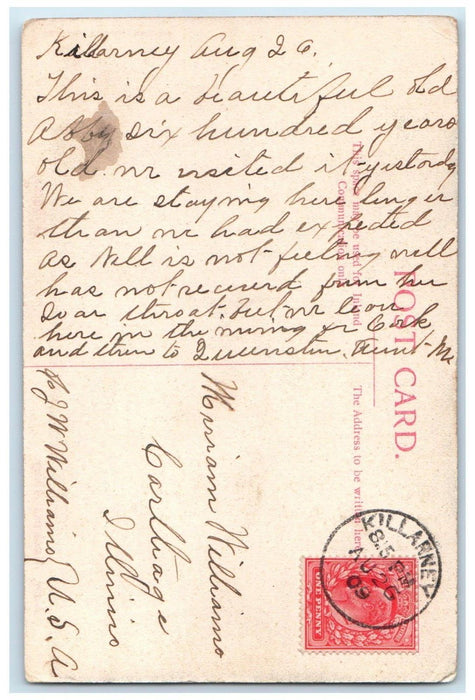 Killarney Aug 26.
This is a beautiful old
Abby six hundred years
old. we visited it yesterday
We are staying here longer
than we had expected
as Nell is not feeling well
has not recoverd from her
soar throat. but we leave
here in the morning for Cork
and then to Queenstin. Aunt M
This space may be used for Inland
Communication only
POST CARD.
The Address to be written here
Miriam Williams
Carthage
Illinois
U.S.A
℅ J W Williams
KILLARNEY
8.5 PM
AU 26
09
ONE PENNY